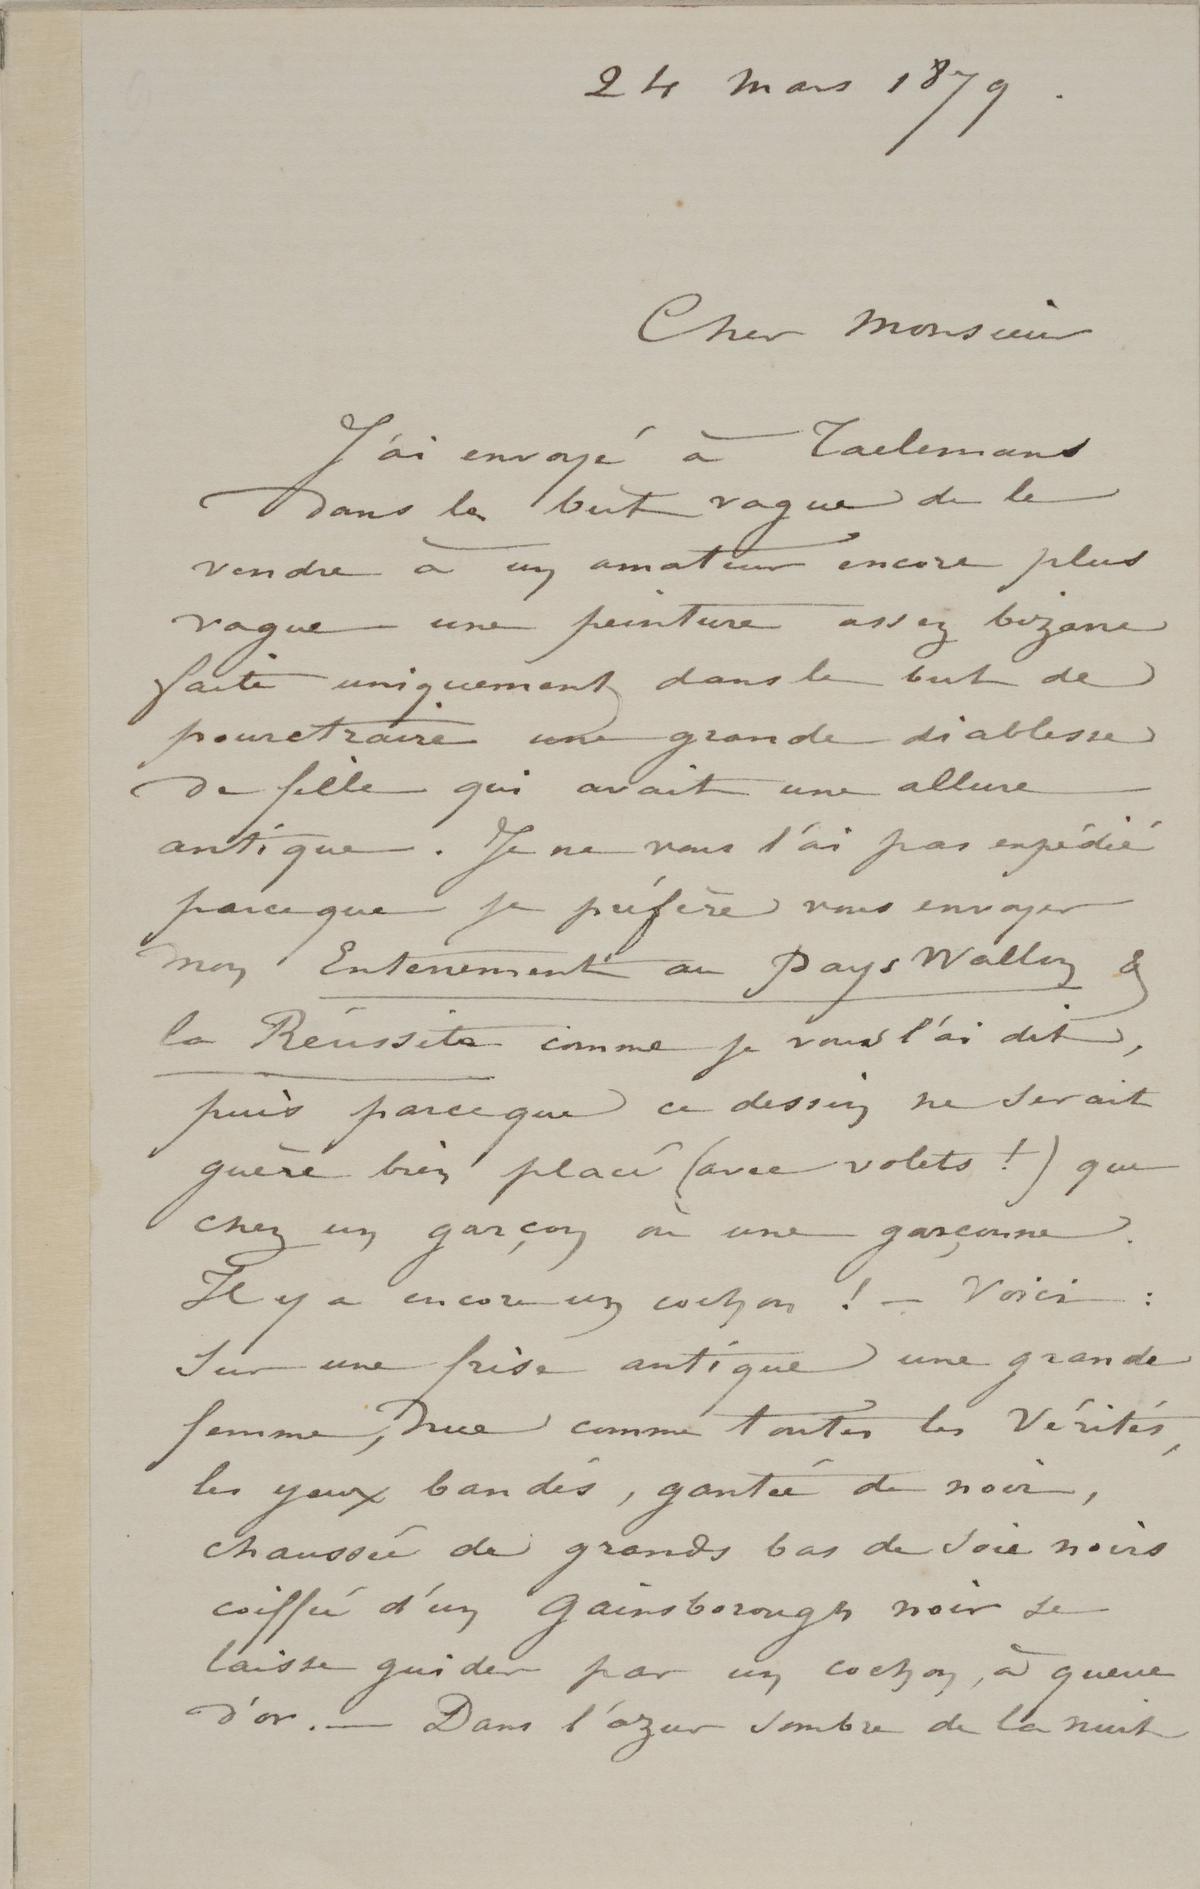 24 Mars 1879.
Cher Monsieur
J'ai envoyé à Taelemans
dans le but vague de le
vendre à un amateur encore plus
vague une peinture assez bizarre
faite uniquement dans le but de
pourctraire une grande diablesse
de fille qui avait une allure
antique. Je ne vous l'ai pas expédié
parceque je préfère vous envoyer
mon Enterrement au Pays Wallon &
la Réussite comme je vous l'ai dit,
puis parceque ce dessin ne serait
guère bien placé (avec volets!) que
chez un garçon où une garçonne.
Il y a encore un cochon ! — Voici :
Sur une frise antique une grande
femme, nue comme toutes les Vérités,
les yeux bandés, gantée de noir,
chaussée de grands bas de soie noirs
coiffée d'un Gainsborough noir se
laisse guider par un cochon, à queue
d'or. — Dans l'azur sombre de la nuit